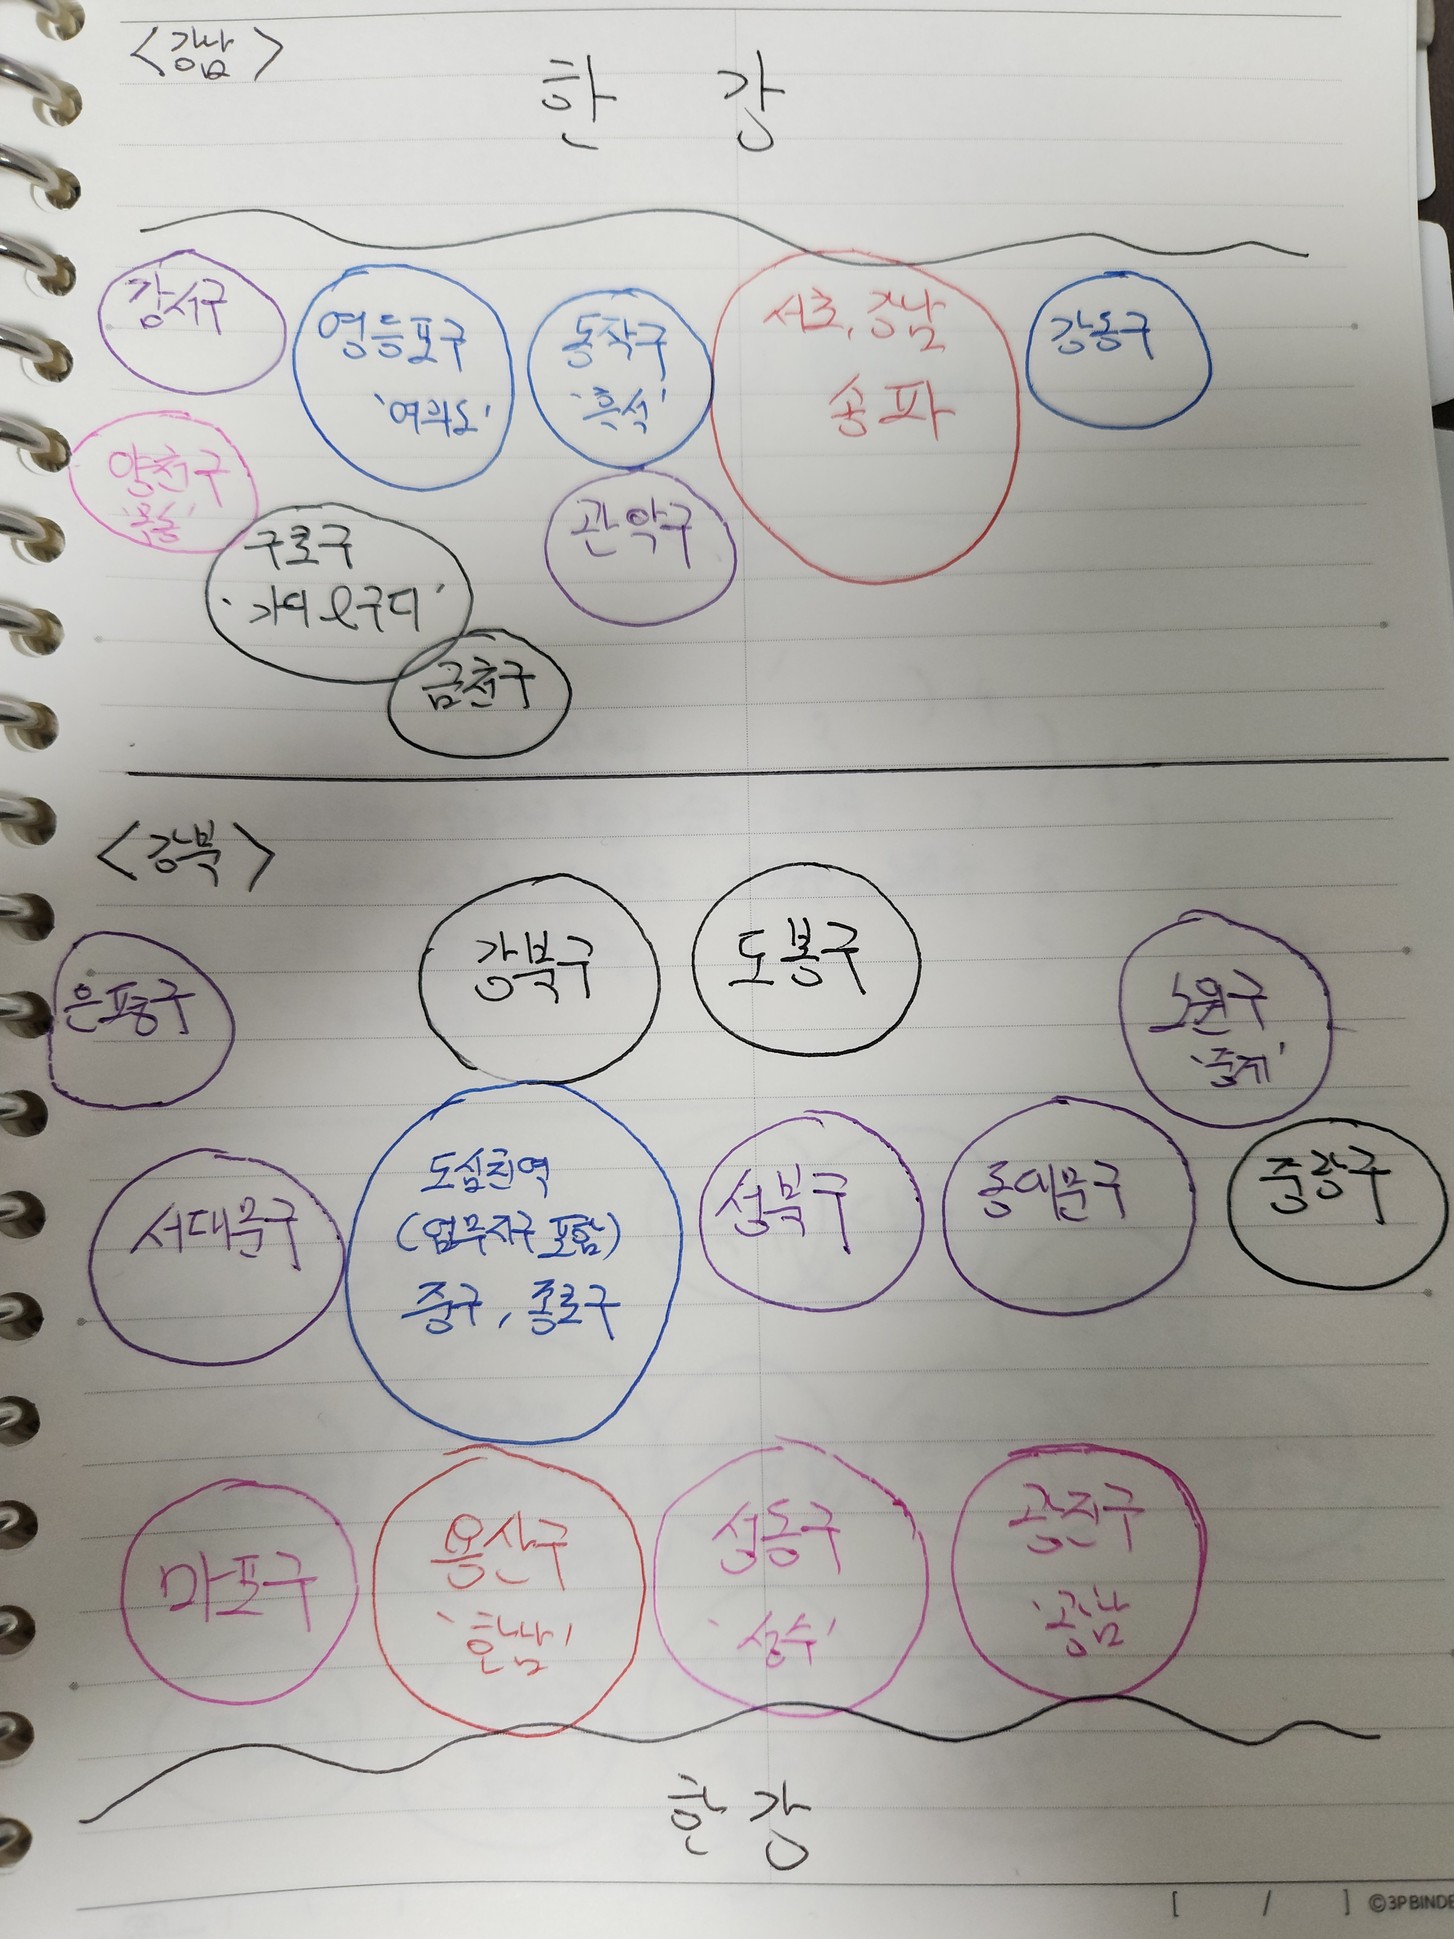 <강남>
한 강
강서구
영등포구
'여의도'
동작구
'흑석'
서초, 강남
송파
강동구
양천구
'목동'
관악구
구로구
'가디&구디'
금천구
<강북>
강북구
도봉구
은평구
노원구
'중계'
서대문구
도심권역
(업무지구 포함)
중구, 종로구
성북구
동대문구
중랑구
마포구
용산구
'한남'
성동구
'성수'
광진구
'광남'
한 강
[ / ] ©3P BINDE